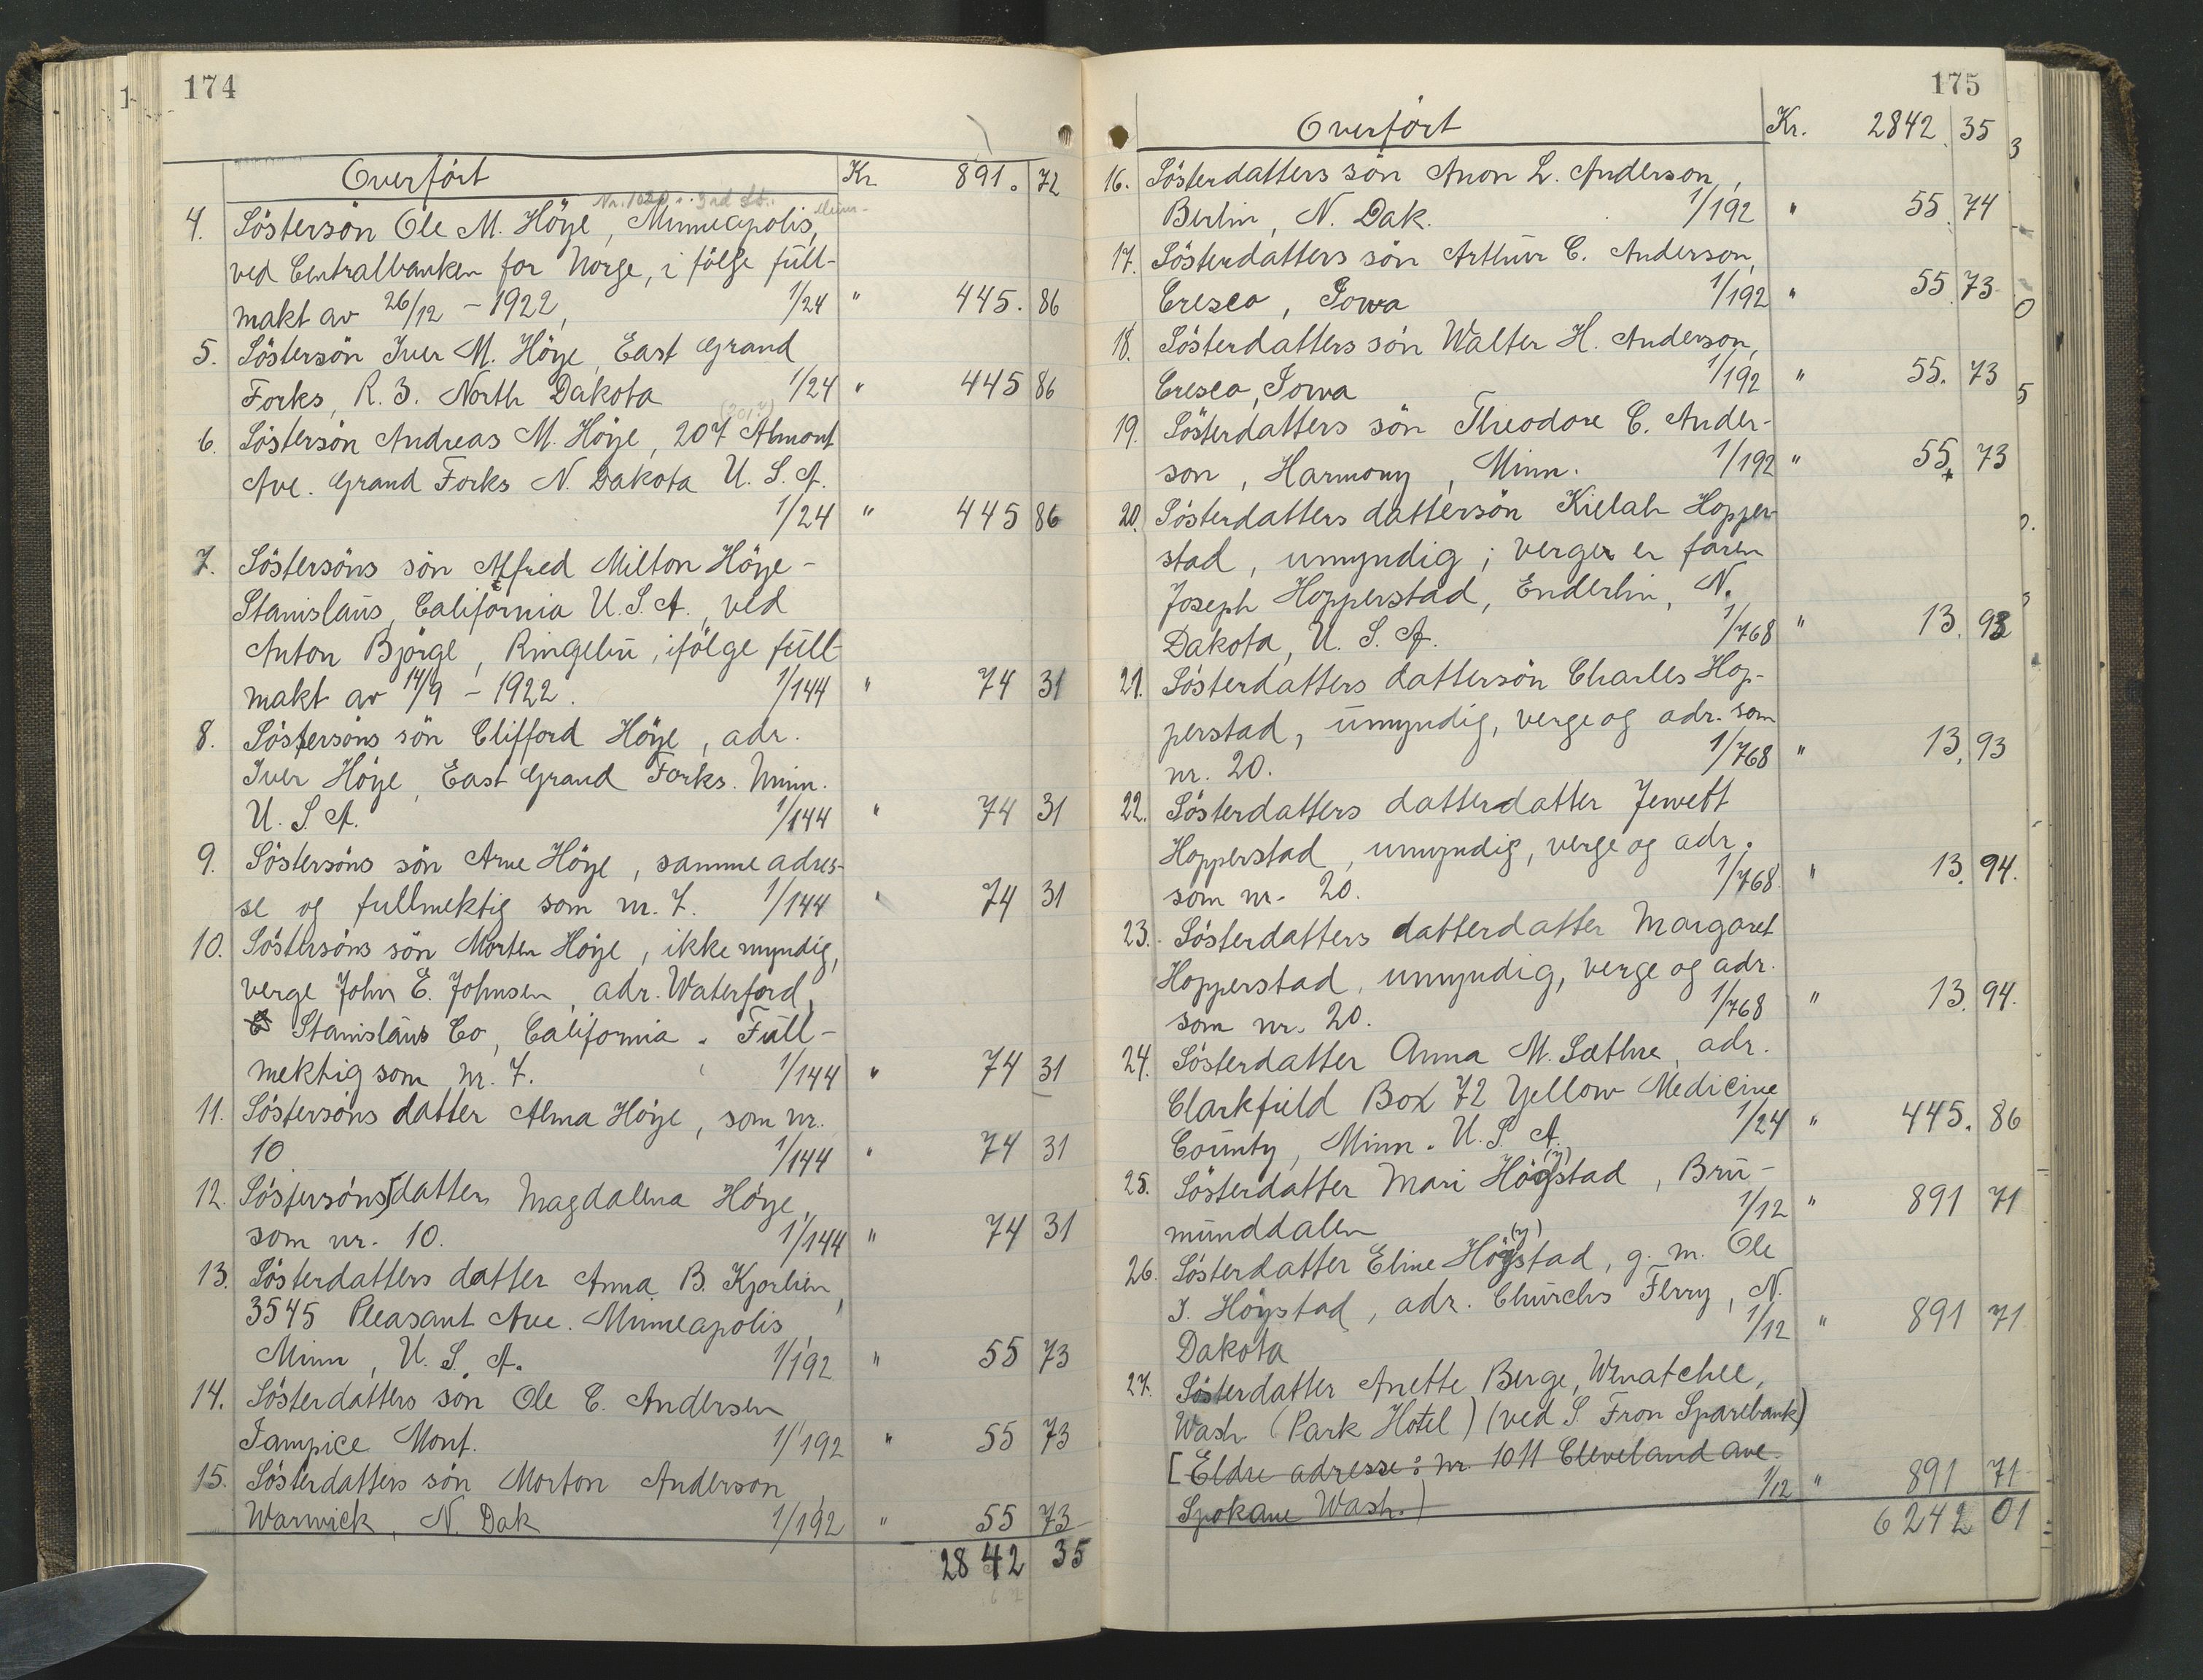 174
Overført Kr 891. 72
Nr. 1020 3rd St.
4. Søstersön Ole M. Höye, Minneapolis,
ved Centralbanken for Norge, i følge full-
makt av 26/12 - 1922, 1/24 " 445. 86
5. Søstersön Iver M. Höye, East Grand
Forks, R. 3. North Dakota 1/24 " 445 86
(2017)
6. Søstersön Andreas M. Höye, 207 Almont
Ave. Grand Forks N. Dakota U. S. A.
1/24 " 445 86
7. Søstersöns sön Alfred Milton Höye -
Stanislaus, California U. S. A., ved
Anton Bjørge, Ringebu, ifølge full-
makt av 14/9 - 1922. 1/144 " 74 31
8. Søstersöns sön Clifford Höye, adr.
Iver Höye, East Grand Forks. Minn.
U. S. A. 1/144 " 74 31
9. Søstersöns sön Arne Höye, samme adres-
se og fullmektig som nr. 7. 1/144 " 74 31
10. Søstersöns sön Morten Höye, ikke myndig,
verge John E. Johnsen, adr. Waterford,
Stanislaus Co, California. Full-
mektig som nr. 7. 1/144 " 74 31
11. Søstersöns datter Alma Höye, som nr.
10 1/144 " 74 31
12. Søstersöns datter Magdalena Höye,
som nr. 10. 1/144 " 74 31
13. Søsterdatters datter Anna B. Kjorlien,
3545 Pleasant Ave. Minneapolis,
Minn, U. S. A. 1/192 " 55 73
14. Søsterdatters sön Ole C. Andersen
Tampice Mont. 1/192 " 55 73
15. Søsterdatters sön Morton Anderson,
Warwick, N. Dak 1/192 " 55 73
2842 35
175
Overført Kr. 2842. 35
16. Søsterdatters sön Anon L. Anderson,
Berlin, N. Dak. 1/192 " 55. 74
17. Søsterdatters sön Arthur C. Anderson,
Cresco, Iowa 1/192 " 55. 73
18. Søsterdatters sön Walter H. Anderson,
Cresco, Iowa 1/192 " 55. 73
19. Søsterdatters sön Theodore C. Ander-
son, Harmony, Minn. 1/192 " 55. 73
20. Søsterdatters dattersön Kielah Hopper-
stad, umyndig; verge er faren
Joseph Hopperstad, Enderlin, N.
Dakota, U. S. A. 1/768 " 13. 93
21. Søsterdatters dattersön Charles Hop-
perstad, umyndig, verge og adr. som
nr. 20. 1/768 " 13. 93
22. Søsterdatters datterdatter Jewett
Hopperstad, umyndig, verge og adr.
som nr. 20. 1/768. " 13. 94.
23. Søsterdatters datterdatter Margaret
Hopperstad, umyndig, verge og adr.
som nr. 20. 1/768 " 13. 94.
24. Søsterdatter Anna M. Sæthre, adr.
Clarkfield Box 72 Yellow Medicine
County, Minn. U. S. A. 1/24 " 445. 86
(y)
25. Søsterdatter Mari Högstad, Bru-
munddalen 1/12 " 891 71
(y)
26. Søsterdatter Eline Högstad, g. m. Ole
I. Höystad, adr. Churchs Ferry, N.
Dakota 1/12 " 891 71
27. Søsterdatter Anette Berge, Wenatchee,
Wash (Park Hotel) (ved S. Fron Sparebank)
[Eldre adresse: nr. 1011 Cleveland ave.
Spokane Wash.) 1/12 " 891 71
6242 01